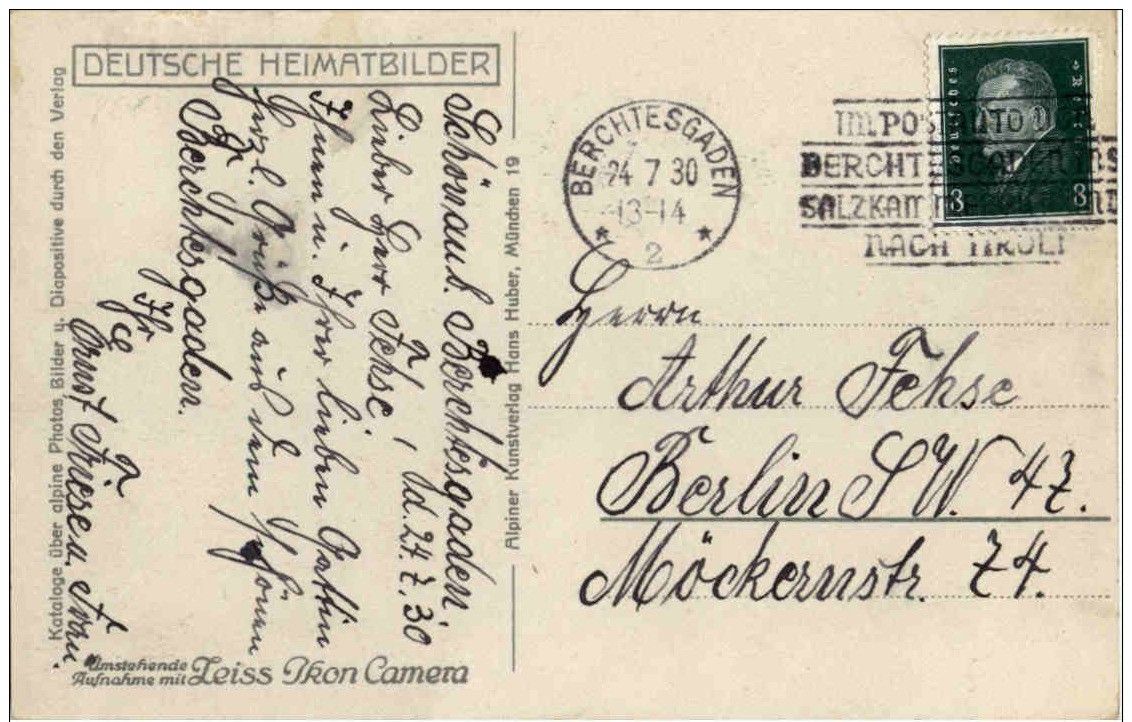 DEUTSCHE HEIMATBILDER
Kataloge über alpine Photos, Bilder u. Diapositive durch den Verlag
Schönau b. Berchtesgaden,
d. 24.7.30
Lieber Herr Fehse!
Ihnen u. Ihrer lieben Gattin
herzl. Grüße aus dem schönen
Berchtesgaden.
Ihr
Ernst Friese u. Frau.
Umstehende
Aufnahme mit Zeiss Ikon Camera
Alpiner Kunstverlag Hans Huber, München 19
BERCHTESGADEN
24 7 30
13-14
* 2 *
Deutsches
8 8
IM POSTAUTO
BERCHTESGADEN INS
SALZKAMMERGUT UND
NACH TIROL!
Herrn
Arthur Fehse
Berlin S.W. 47.
Möckernstr. 74.